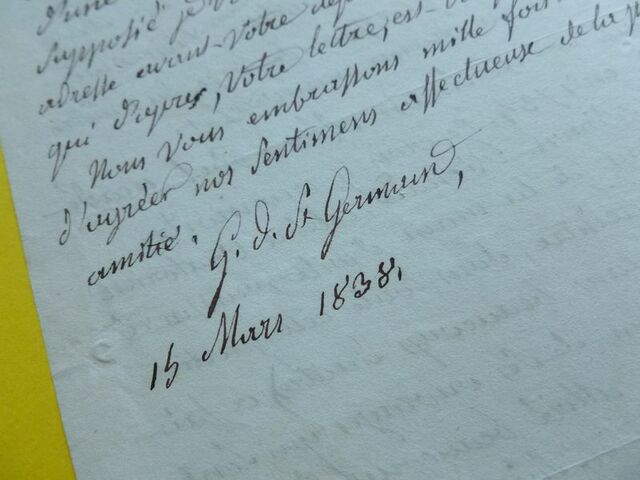 d'une
Supposié je
adresse avant votre dep
qui d'apres, Votre lettre, est
Nous Vous embrassons mille fois
d'agréer nos Sentimens affectueux de la p
amitié.
G. d. St Germain,
15 Mars 1838,